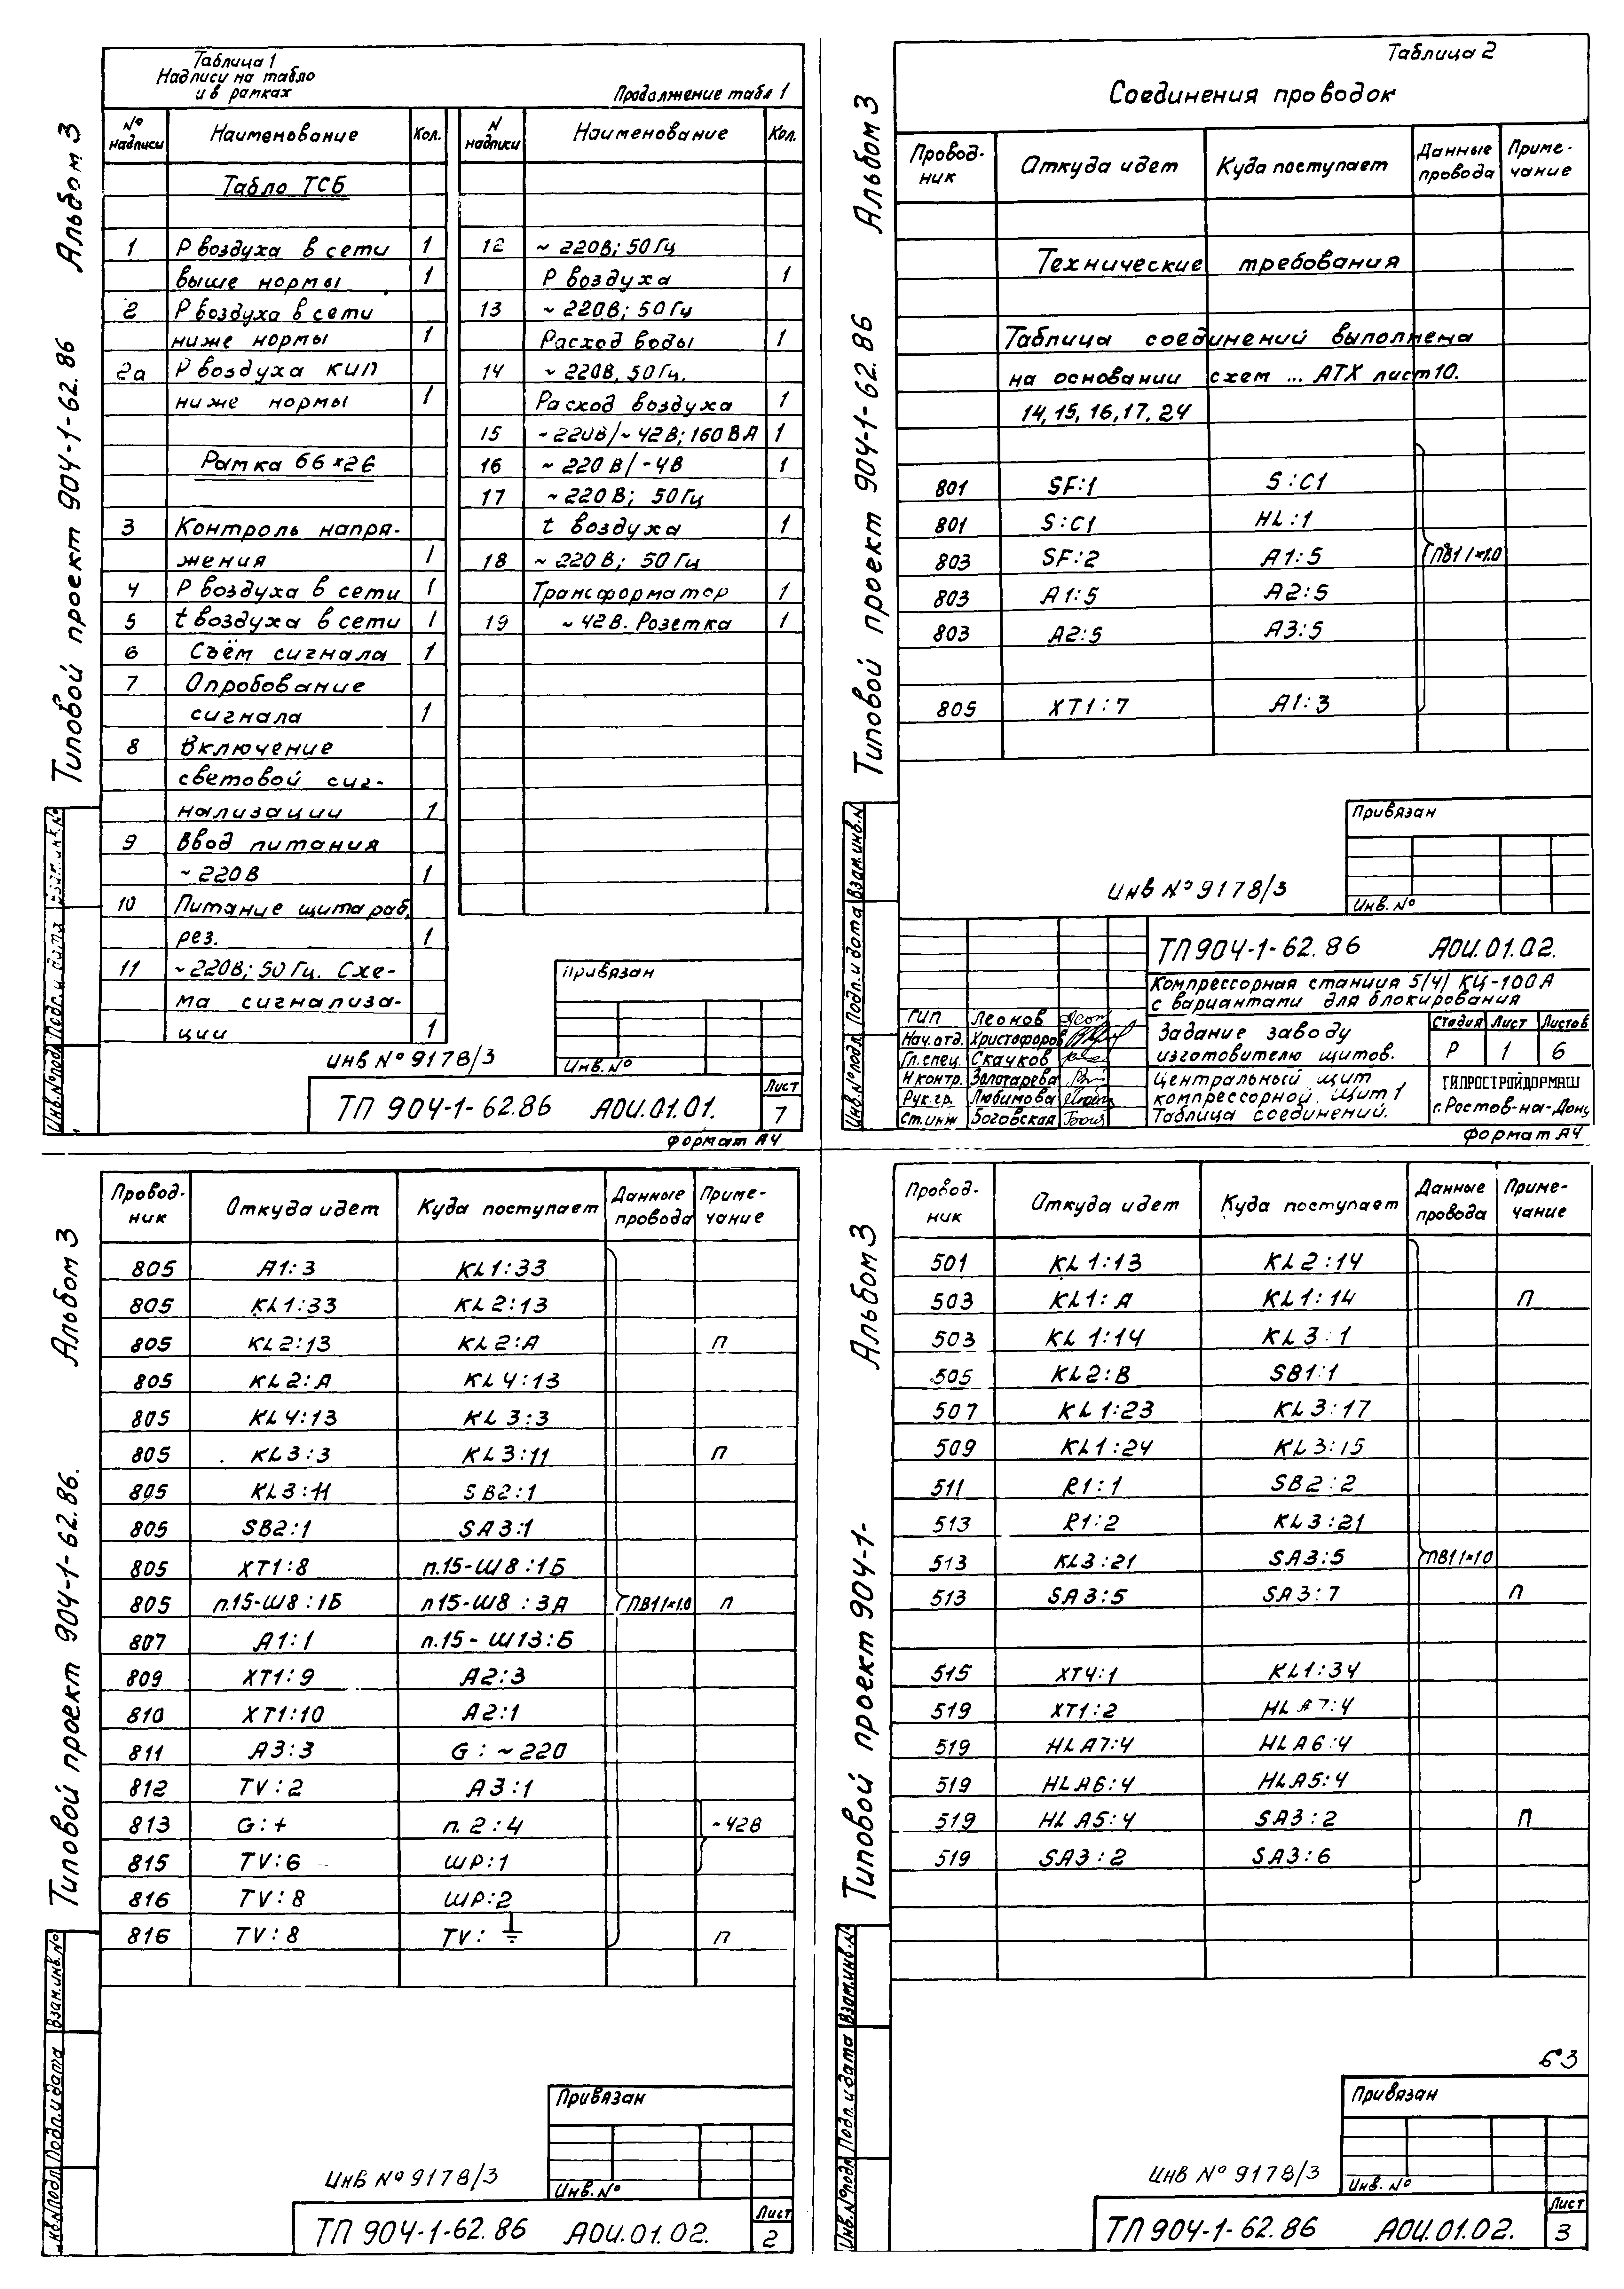 Альбом 3
Типовой проект 904-1-62.86
Таблица 1
Надписи на табло
и в рамках
Продолжение табл 1
№ надписи Наименование Кол.
N надписи Наименование Кол.
Табло ТСБ
1 Р воздуха в сети 1
выше нормы 1
2 Р воздуха в сети
ниже нормы 1
2а Р воздуха КИП
ниже нормы 1
Рамка 66×26
3 Контроль напря-
жения 1
4 Р воздуха в сети 1
5 t воздуха в сети 1
6 Съём сигнала 1
7 Опробование
сигнала 1
8 Включение
световой сиг-
нализации 1
9 Ввод питания
~ 220В 1
10 Питание щита раб,
рез. 1
11 ~ 220В; 50 Гц. Схе-
ма сигнализа-
ции 1
12 ~ 220В; 50 Гц
Р воздуха 1
13 ~ 220В; 50 Гц
Расход воды 1
14 ~ 220В, 50 Гц.
Расход воздуха 1
15 ~ 220В/~ 42В; 160 ВА 1
16 ~ 220 В/-4В 1
17 ~ 220 В; 50 Гц
t воздуха 1
18 ~ 220 В; 50 Гц
Трансформатор 1
19 ~ 42В. Розетка 1
Привязан
Инв. №
инв № 9178/3
ТП 904-1-62.86 АОИ.01.01.
Лист
7
Формат А4
Инв.№подл. Подп. и дата Взам.инв.№
Альбом 3
Типовой проект 904-1-62.86
Таблица 2
Соединения проводок
Провод-
ник
Откуда идет
Куда поступает
Данные
провода
Приме-
чание
Технические требования
Таблица соединений выполнена
на основании схем ... АТХ лист 10.
14, 15, 16, 17, 24
801 SF:1 S:C1
801 S:C1 HL:1
803 SF:2 А1:5 ПВ1 1×1.0
803 А1:5 А2:5
803 А2:5 А3:5
805 ХТ1:7 А1:3
Привязан
Инв. №
инв № 9178/3
ТП 904-1-62.86 АОИ.01.02.
Компрессорная станция 5(4) КЦ-100А
с вариантами для блокирования
ГИП Леонов
Нач.отд. Христофоров
Гл.спец. Скачков
Н контр. Золотарева
Рук.гр. Любимова
Ст.инж Боговская
Задание заводу
изготовителю щитов.
Стадия Лист Листов
Р 1 6
Центральный щит
компрессорной. Щит 1
Таблица соединений.
ГИПРОСТРОЙДОРМАШ
г. Ростов-на-Дону
Формат А4
Инв.№подл. Подп. и дата Взам.инв.№
Альбом 3
Типовой проект 904-1-62.86.
Провод-
ник
Откуда идет
Куда поступает
Данные
провода
Приме-
чание
805 А1:3 KL1:33
805 KL1:33 KL2:13
805 KL2:13 KL2:А П
805 KL2:А KL4:13
805 KL4:13 KL3:3
805 KL3:3 KL3:11 П
805 KL3:11 SB2:1
805 SB2:1 SA3:1
805 ХТ1:8 п.15-Ш8:1Б
805 п.15-Ш8:1Б п15-Ш8:3А ПВ1 1×1.0 П
807 А1:1 п.15-Ш13:Б
809 ХТ1:9 А2:3
810 ХТ1:10 А2:1
811 А3:3 G:~220
812 TV:2 А3:1
813 G:+ п.2:4 ~42В
815 TV:6 ШР:1
816 TV:8 ШР:2
816 TV:8 TV:⏚ П
Привязан
Инв. №
Инв № 9178/3
ТП 904-1-62.86 АОИ.01.02.
Лист
2
Инв.№подл Подп. и дата Взам.инв.№
Альбом 3
Типовой проект 904-1-
Провод-
ник
Откуда идет
Куда поступает
Данные
провода
Приме-
чание
501 KL1:13 KL2:14
503 KL1:А KL1:14 П
503 KL1:14 KL3:1
505 KL2:В SB1:1
507 KL1:23 KL3:17
509 KL1:24 KL3:15
511 R1:1 SB2:2
513 R1:2 KL3:21
513 KL3:21 SA3:5 ПВ1 1×1.0
513 SA3:5 SA3:7 П
515 ХТ4:1 KL1:34
519 ХТ1:2 HLA7:4
519 HLA7:4 HLA6:4
519 HLA6:4 HLA5:4
519 HLA5:4 SA3:2 П
519 SA3:2 SA3:6
Привязан
Инв. №
Инв № 9178/3
ТП 904-1-62.86 АОИ.01.02.
Лист
3
Инв.№подл Подп. и дата Взам.инв.№